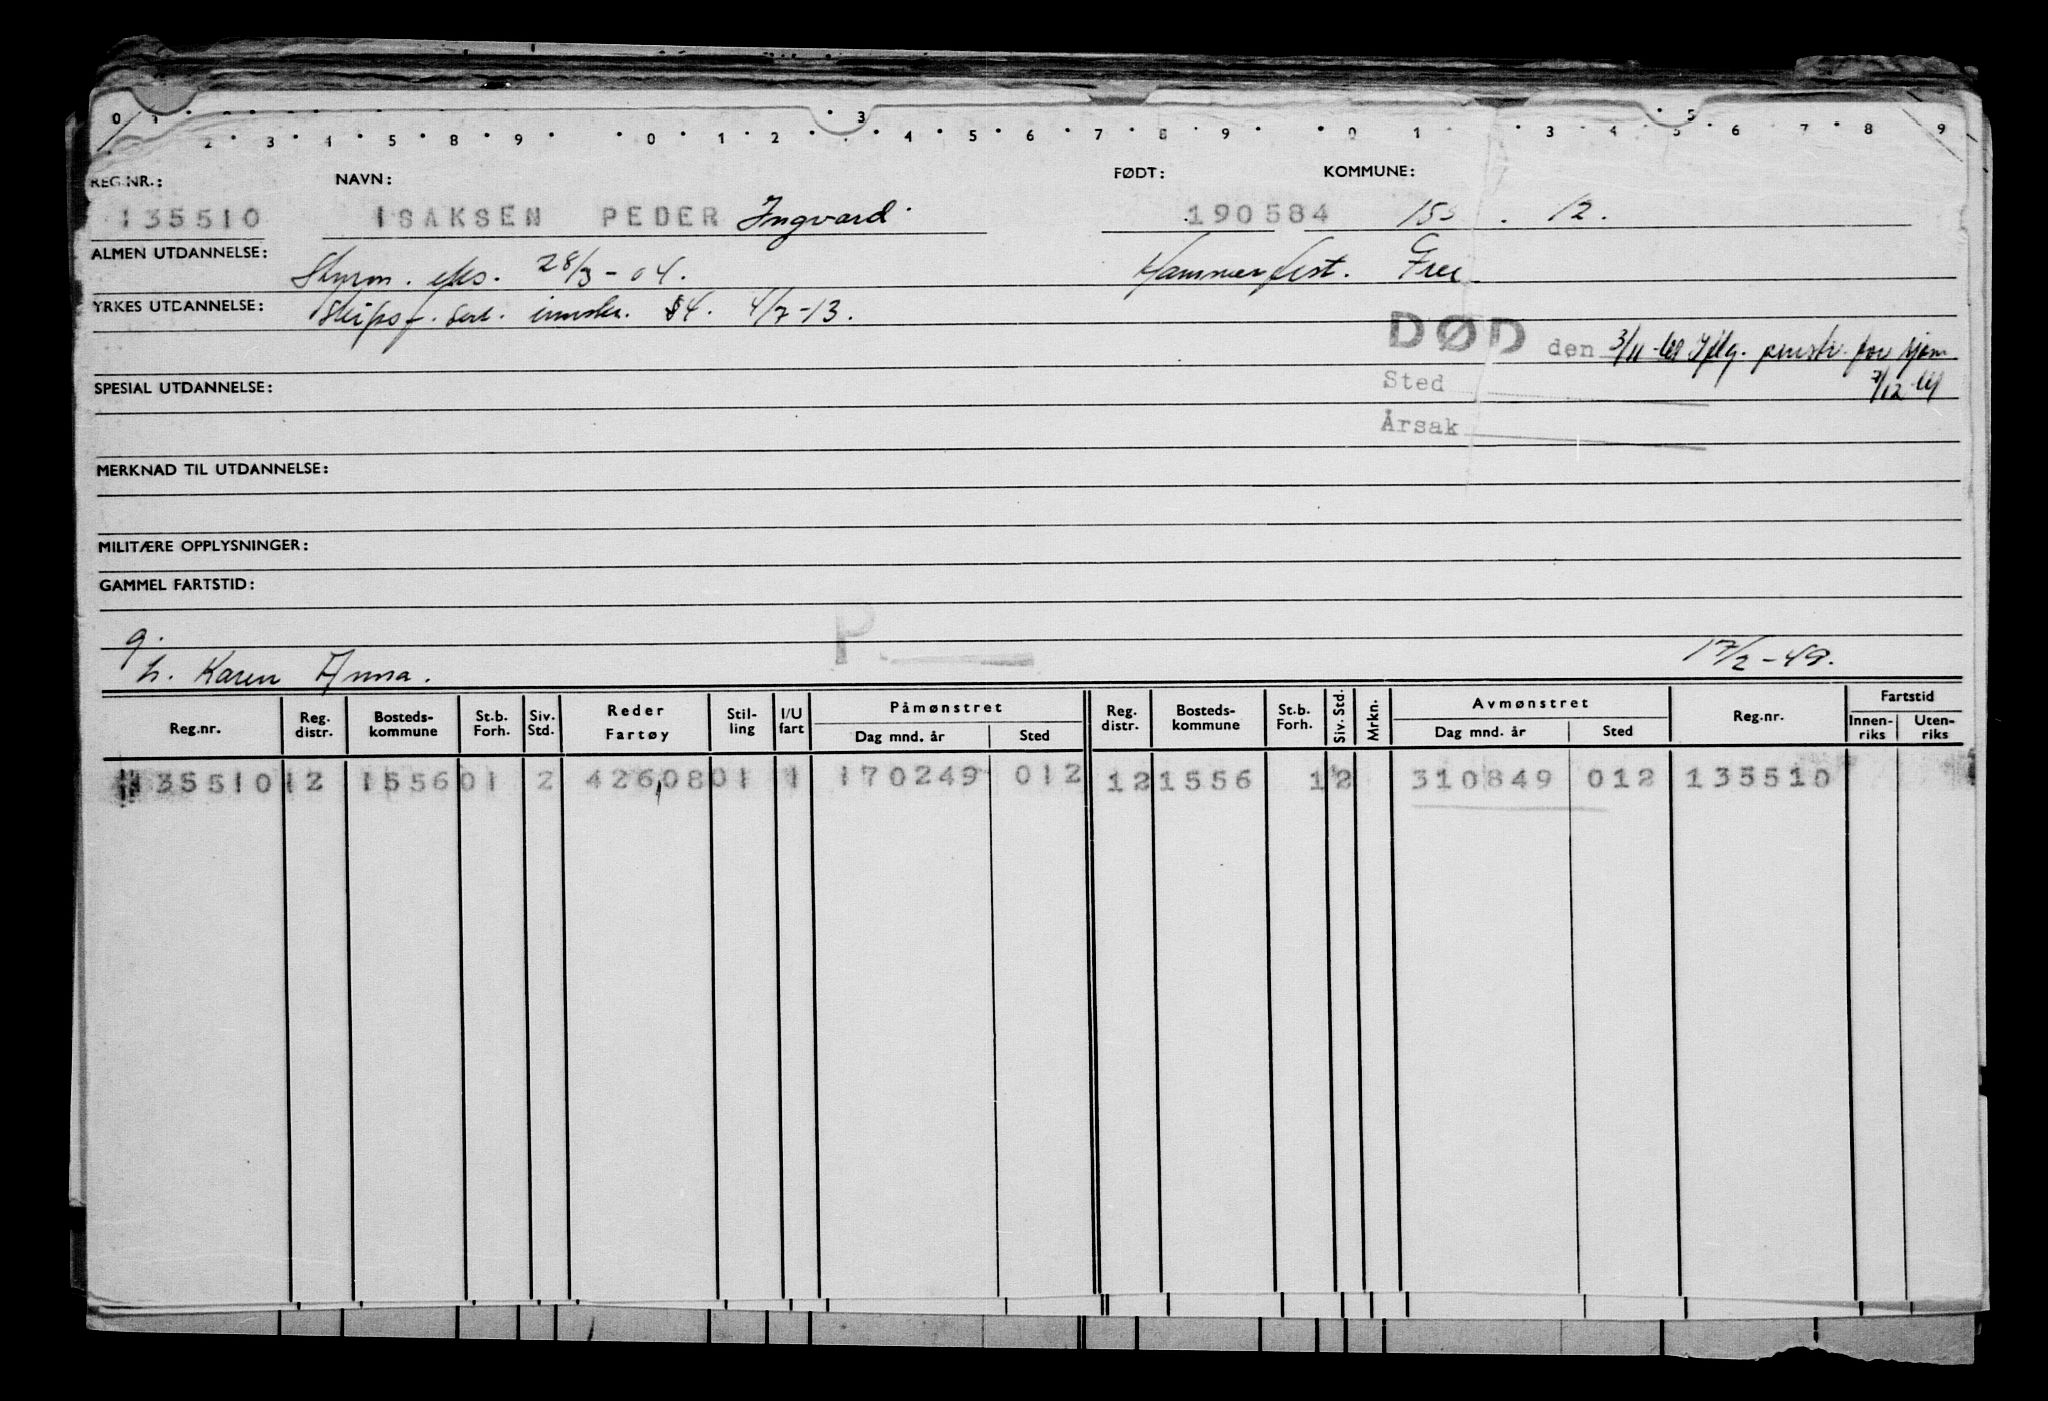 0 1 3 5
2 3 4 5 8 9 0 1 2 4 5 6 7 8 9 0 1 3 4 5 6 7 8 9
REG.NR.: NAVN: FØDT: KOMMUNE:
135510 ISAKSEN PEDER Ingvard 190584 12.
ALMEN UTDANNELSE: Styrm. eks. 28/3-04. Hammerfest. Frei
YRKES UTDANNELSE: Skipsf. sert. innskr. §4. 4/7-13.
DØD den 3/11-61 Iflg. for sjøm
SPESIAL UTDANNELSE: Sted 7/12-61
Årsak
MERKNAD TIL UTDANNELSE:
MILITÆRE OPPLYSNINGER:
GAMMEL FARTSTID:
g. P.
h. Karen Anna. 17/2-49.
Reg.nr. Reg. distr. Bosteds-kommune St.b. Forh. Siv. Std. Reder Fartøy Stil-ling I/U fart Påmønstret Dag mnd. år Sted Reg. distr. Bosteds-kommune St.b. Forh. Siv. Std. Mrkn. Avmønstret Dag mnd. år Sted Reg.nr. Fartstid Innen-riks Uten-riks
135510 12 1556 01 2 42608 01 1 170249 012 12 1556 1 2 310849 012 135510